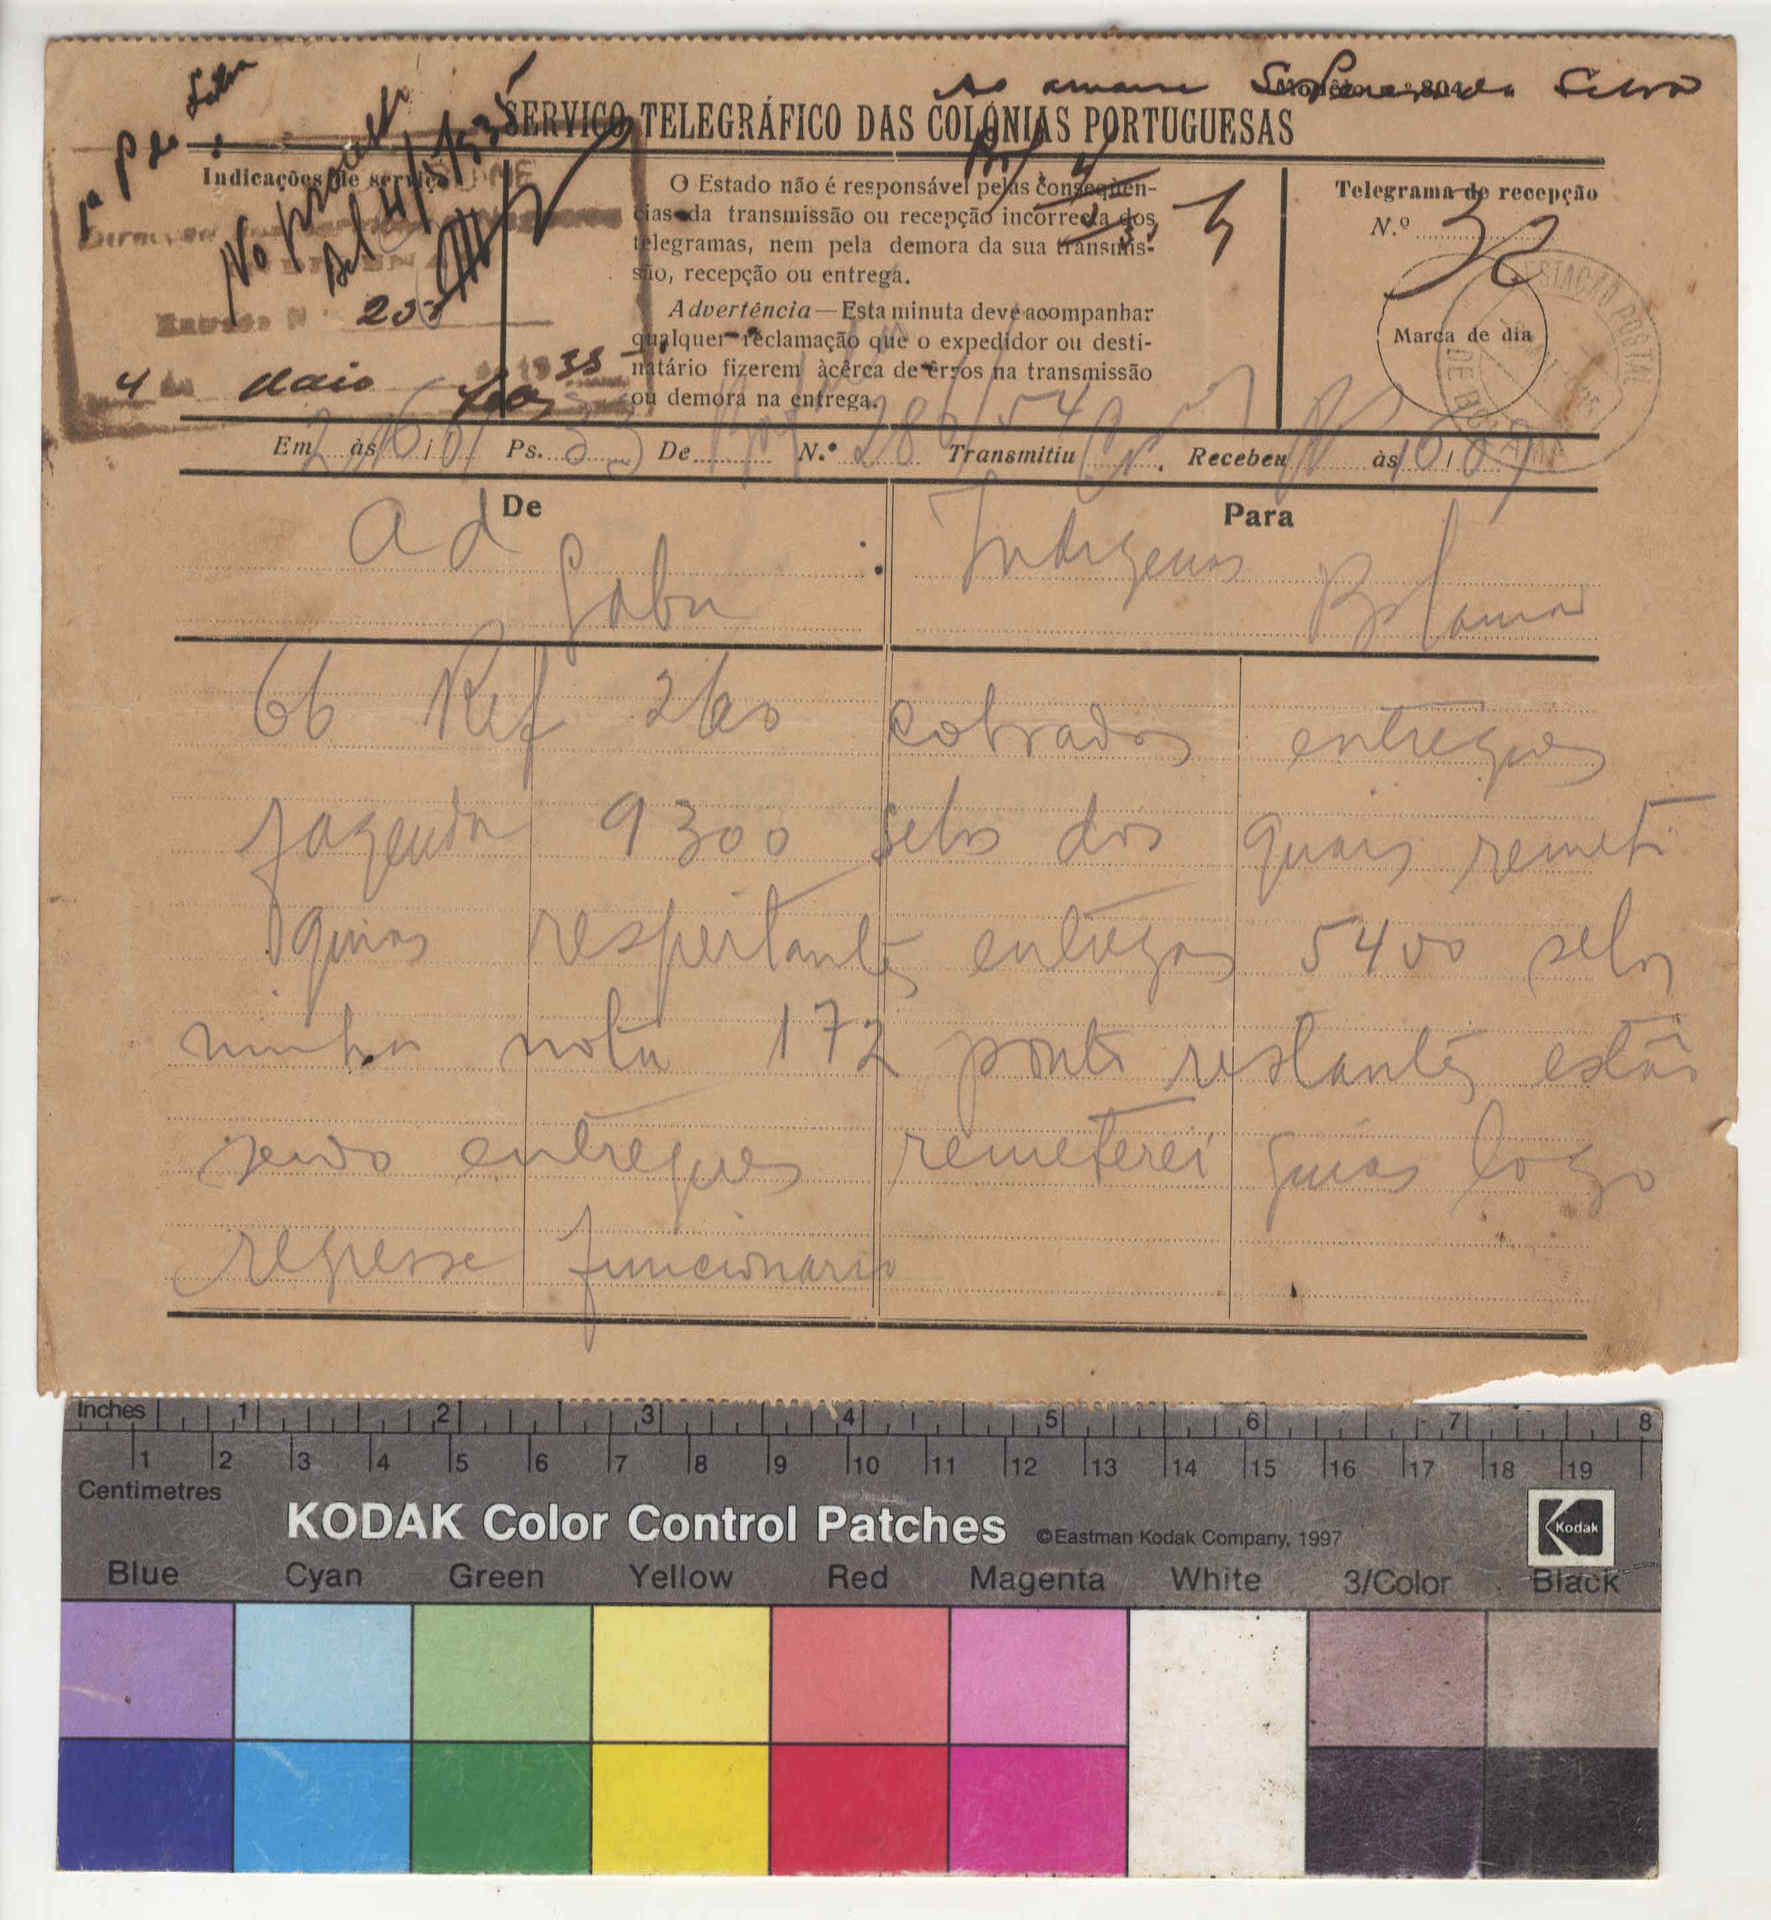 Ao amanuense Silva
SERVIÇO TELEGRÁFICO DAS COLÓNIAS PORTUGUESAS
Indicações de serviço
No processo
4/5/35
Entrada N.º
4 maio 35
O Estado não é responsável pelas conseqüên-
cias da transmissão ou recepção incorrecta dos
telegramas, nem pela demora da sua transmis-
são, recepção ou entrega.
Advertência — Esta minuta deve acompanhar
qualquer reclamação que o expedidor ou desti-
natário fizerem àcêrca de êrros na transmissão
ou demora na entrega.
Telegrama de recepção
N.º 32
Marca de dia
ESTAÇÃO POSTAL DE BOLAMA
Em às Ps. De N.º 286/54 Transmitiu Recebeu às
De
Ad
Gabu
Para
Indigenas
Bolama
66 Ref 260 cobrados entregues
fazenda 9300 selos dos quais remeti
guias respeitantes entregas 5400 selos
minha nota 172 ponto restantes estão
sendo entregues remeterei guias logo
regresse funcionario
Inches 1 2 3 4 5 6 7 8
1 2 3 4 5 6 7 8 9 10 11 12 13 14 15 16 17 18 19
Centimetres
KODAK Color Control Patches ©Eastman Kodak Company, 1997 Kodak
Blue Cyan Green Yellow Red Magenta White 3/Color Black